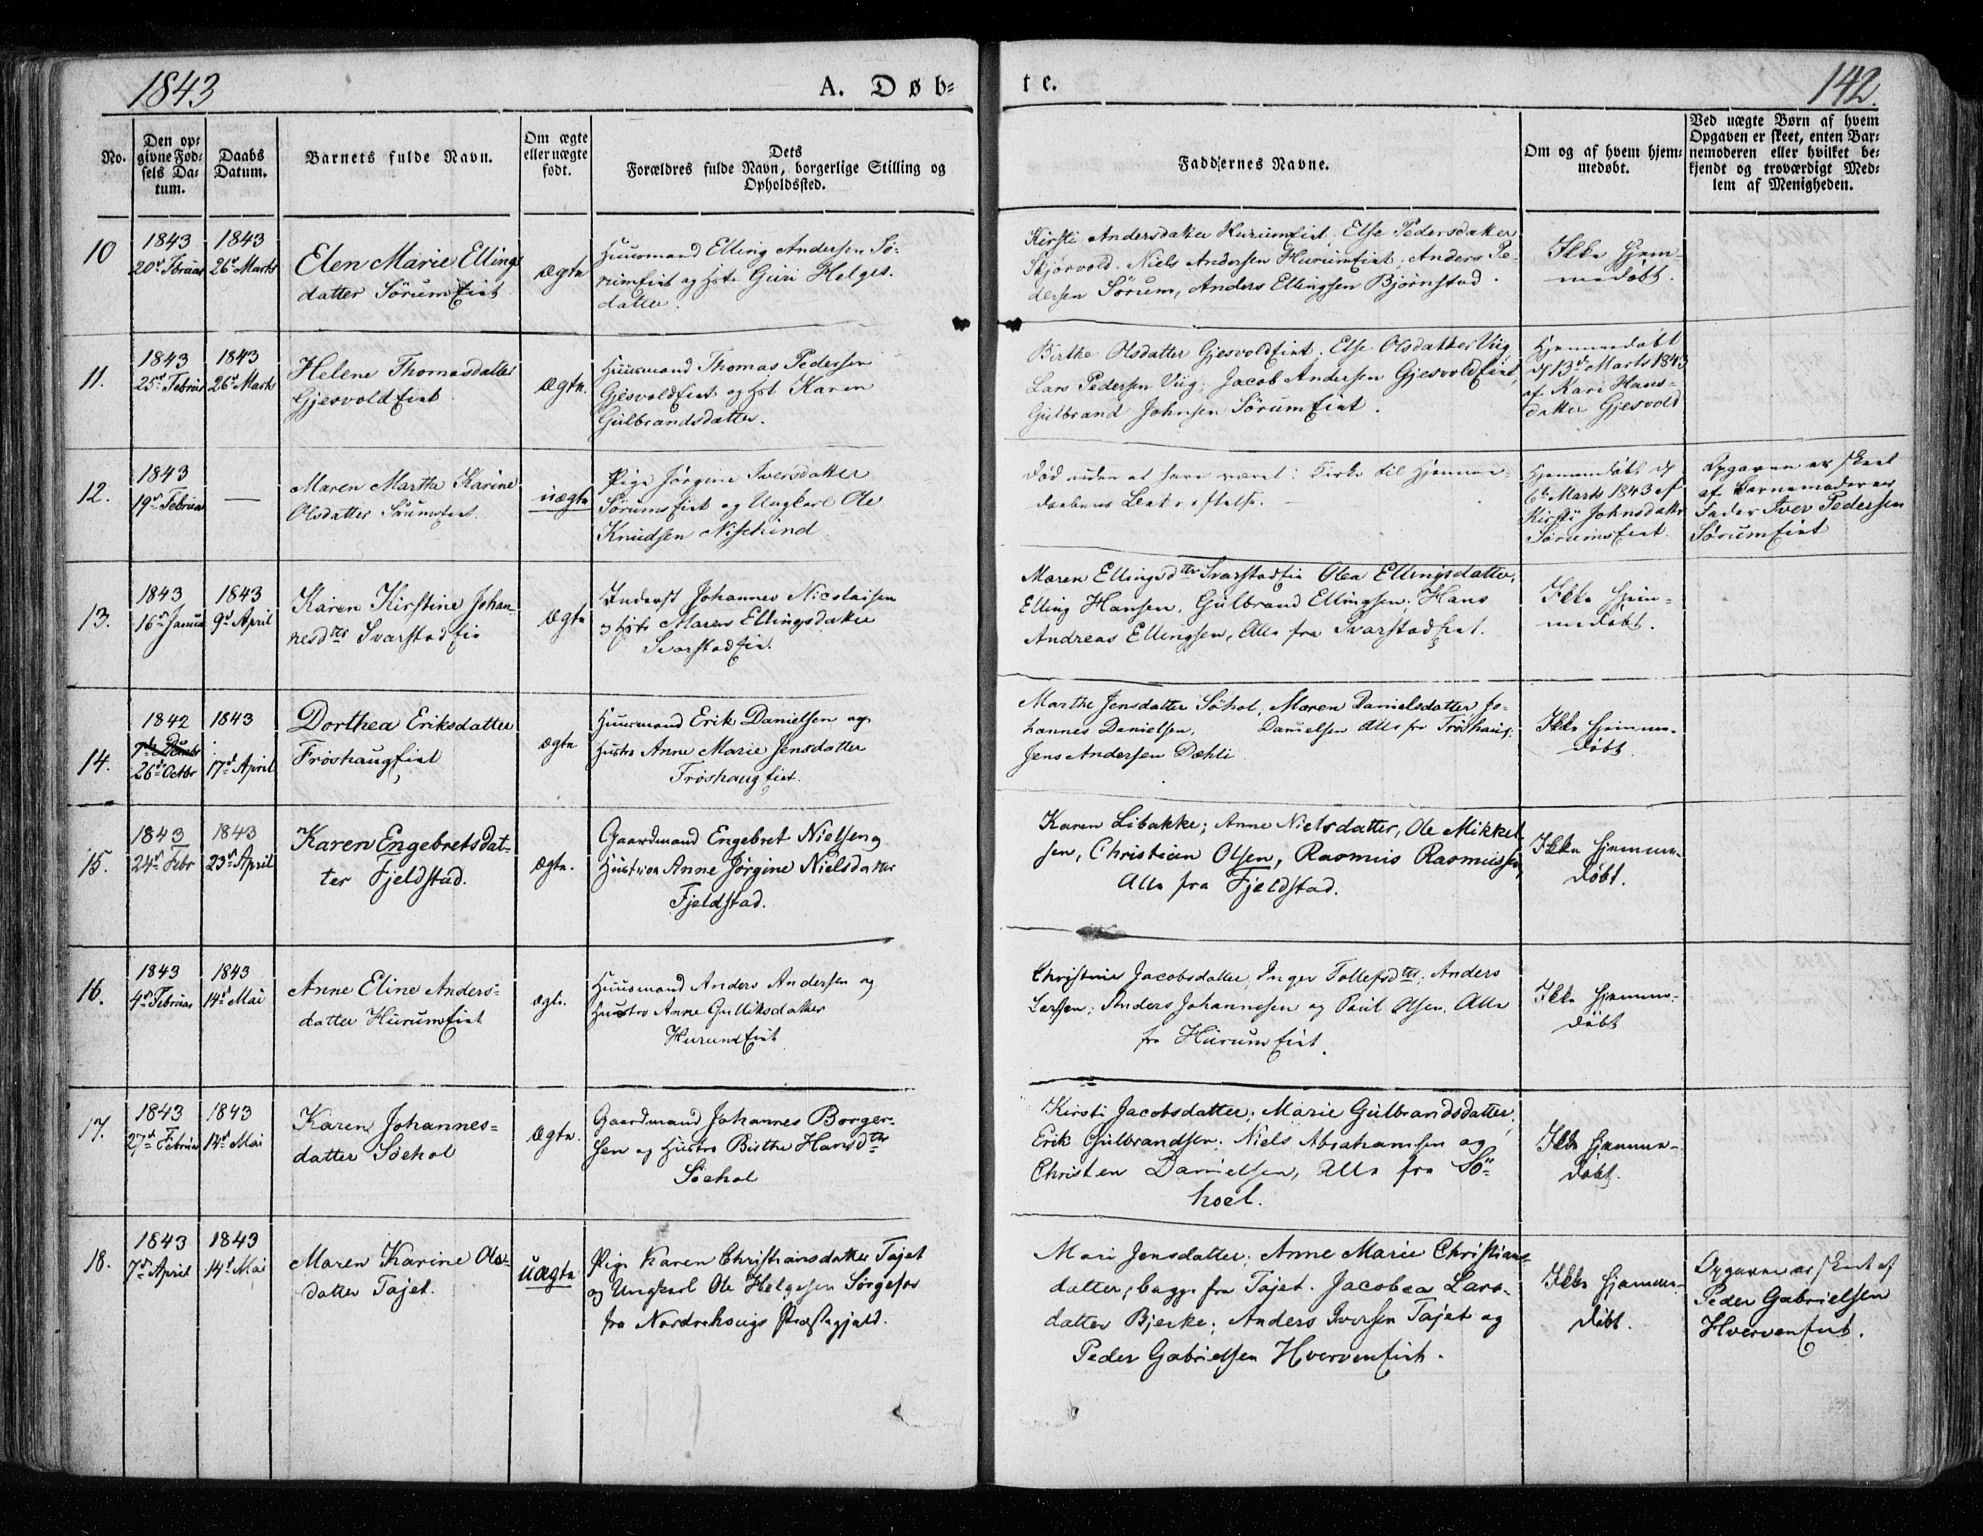 1843
A. Døb=
te.
142.
No.
Den op=
givne Fød=
sels Da=
tum.
Daabs
Datum.
Barnets fulde Navn.
Om ægte
eller uægte
født.
Dets
Forældres fulde Navn, borgerlige Stilling og
Opholdssted.
Faddernes Navne.
Om og af hvem hjem=
medøbt.
Ved uægte Børn af hvem
Opgaven er skeet, enten Bar=
nemoderen eller hvilket be=
kjendt og troværdigt Med=
lem af Menigheden.
10
1843
20de Februar
1843
26de Marts
Elen Marie Ellings
datter Sørumeiet
Ægte
Huusmand Elling Andersen Sø-
rumeiet og Hst. Guri Helges-
datter.
Kirsti Andersdatter Hurumeiet, Else Pedersdatter
Skjørvold. Niels Andersen Hurumeiet, Anders Pe-
dersen Sørum, Anders Ellingsen Bjørnstad.
Ikke Hjem-
medøbt.
11.
1843
25de Februar
1843
26de Marts
Helene Thomasdatter
Gjesvoldeiet
Ægte.
Huusmand Thomas Pedersen
Gjesvoldeiet og Hst Karen
Gulbrandsdatter.
Birthe Olsdatter Gjesvoldeiet, Else Olsdatter Viig
Lars Pedersen Viig, Jacob Andersen Gjesvoldeiet,
Gulbrand Johnsen Sørumeiet.
Hjemmedøbt
d. 13de Marts 1843
af Kari Hans-
datter Gjesvold
12.
1843
19de Februar
—
Maren Marthe Karine
Olsdatter Sørumseiet.
uægte
Pige Jørgine Iversdatter
Sørumseiet og Ungkarl Ole
Knudsen
Død uden at have været i Kirke til Hjemme-
daabens Bekræftelse.
Hjemmedøbt d
6te Marts 1843 af
Kirsti Johnsdatter
Sørumseiet.
Opgaven er skeet
af Barnemoderens
Fader Iver Pedersen
Sørumeiet
13.
1843
16de Januar
1843
9de April
Karen Kirstine Johan-
nesdtr Svarstadeie
Ægte
Inderst Johannes Nicolaisen
og Hst. Maren Ellingsdatter
Svarstadeiet.
Maren Ellingsdtr Svarstadeie Olea Ellingsdatter,
Elling Hansen, Gulbrand Ellingsen, Hans
Andreas Ellingsen, Alle fra Svarstadeiet.
Ikke Hjem-
medøbt.
14.
1842
26de Octbr
1843
17de April
Dorthea Eriksdatter
Frøshaugeiet
Ægte
Huusmand Erik Danielsen og
Hustro Anne Marie Jensdatter
Frøshaugeiet.
Marthe Jensdatter Søhol, Maren Danielsdatter, Jo-
hannes Danielsen, Danielsen Alle fra Frøshaug.
Jens Andersen Dæhli
Ikke Hjemme-
døbt.
15.
1843
24de Febr
1843
23de April
Karen Engebretsdat-
ter Fjeldstad.
Ægte.
Gaardmand Engebret Nielsen og
Hustroe Anne Jørgine Nielsdatter
Fjeldstad.
Karen Libakke, Anne Nielsdatter, Ole Mikkel-
sen, Christian Olsen, Rasmus Rasmussen,
Alle fra Fjeldstad.
Ikke Hjemme-
døbt.
16.
1843
4de Februar
1843
14de Mai
Anne Eline Anders-
datter Hurumeiet
Ægte.
Huusmand Anders Andersen og
Hustro Anne Gulliksdatter
Hurumeiet
Christine Jacobsdatter, Inger Tollefsdtr, Anders
Larsen, Anders Johannesen og Paul Olsen, Alle
fra Hurumeiet.
Ikke Hjemme-
døbt
17.
1843
27de Februar
1843
14de Mai
Karen Johannes-
datter Søehol
Ægte.
Gaardmand Johannes Borger-
sen og Hustro Birthe Hansdtr
Søehol
Kirsti Jacobsdatter, Marie Gulbrandsdatter,
Erik Gulbrandsen, Niels Abrahamsen og
Christen Danielsen, Alle fra Sø-
hoel.
Ikke Hjemme-
døbt.
18.
1843
7de April
1843
14de Mai
Maren Karine Ols-
datter Tajet.
Uægte
Pige Karen Christiansdatter Tajet
og Ungkarl Ole Helgesen Sørgefos
fra Nordrehougs Præstegjeld.
Mari Jensdatter, Anne Marie Christians-
datter, begge fra Tajet. Jacobea Lars-
datter Bjerke, Anders Iversen Tajet og
Peder Gabrielsen Hverveneiet.
Ikke Hjemme-
døbt.
Opgaven er skeet af
Peder Gabrielsen
Hverveneiet.